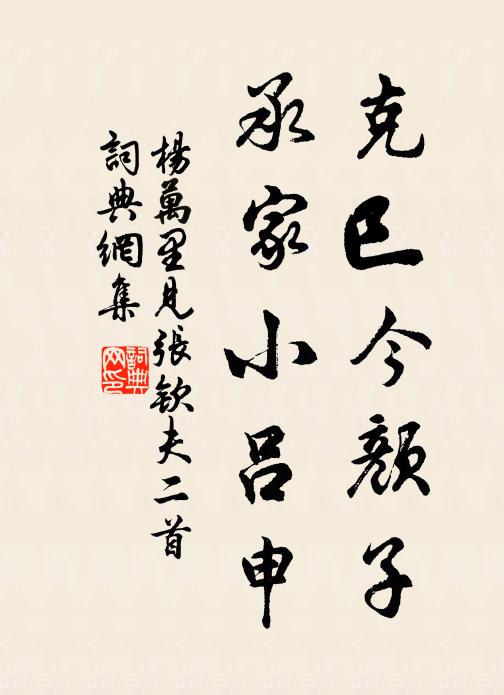 克已今顔子
承家小吕申
楊萬里見張欽夫二首
詞典網集
詞典网印